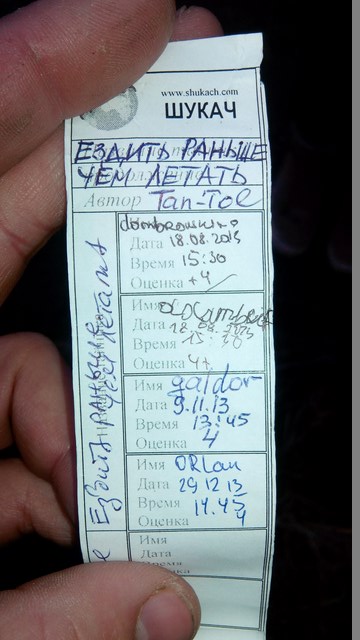 www.shukach.com
ШУКАЧ
ЕЗДИТЬ РАНЬШЕ
ЧЕМ ЛЕТАТЬ
Автор Tan-Tol
Дата 18.08.2013
Время 15:30
Оценка +4
Имя
Дата 18.08.2013
Время 15:30
Оценка 4+
Имя galdor
Дата 9.11.13
Время 13:45
Оценка 4
Имя ORlan
Дата 29 12 13
Время 14.45
Оценка 4
Имя
Дата
Ездить раньше
чем летать